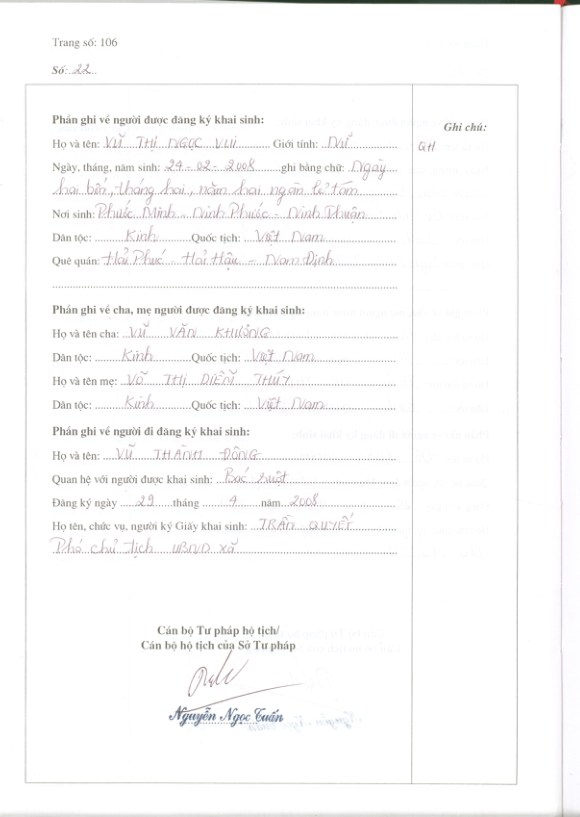 Trang số: 106
Số: 22
Phần ghi về người được đăng ký khai sinh:
Ghi chú:
Họ và tên: VŨ THỊ NGỌC VUI Giới tính: Nữ
Ngày, tháng, năm sinh: 24-02-2008 ghi bằng chữ: Ngày
hai bốn, tháng hai, năm hai ngàn lẻ tám
Nơi sinh: Phước Minh - Ninh Phước - Ninh Thuận
Dân tộc: Kinh Quốc tịch: Việt Nam
Quê quán: Hải Phúc - Hải Hậu - Nam Định
Phần ghi về cha, mẹ người được đăng ký khai sinh:
Họ và tên cha: VŨ VĂN KHƯƠNG
Dân tộc: Kinh Quốc tịch: Việt Nam
Họ và tên mẹ: VÕ THỊ DIỄM THÚY
Dân tộc: Kinh Quốc tịch: Việt Nam
Phần ghi về người đi đăng ký khai sinh:
Họ và tên: VŨ THÀNH ĐÔNG
Quan hệ với người được khai sinh: Bác ruột
Đăng ký ngày 29 tháng 4 năm 2008
Họ tên, chức vụ, người ký Giấy khai sinh: TRẦN QUYẾT
Phó chủ tịch UBND xã
Cán bộ Tư pháp hộ tịch/
Cán bộ hộ tịch của Sở Tư pháp
Nguyễn Ngọc Tuấn